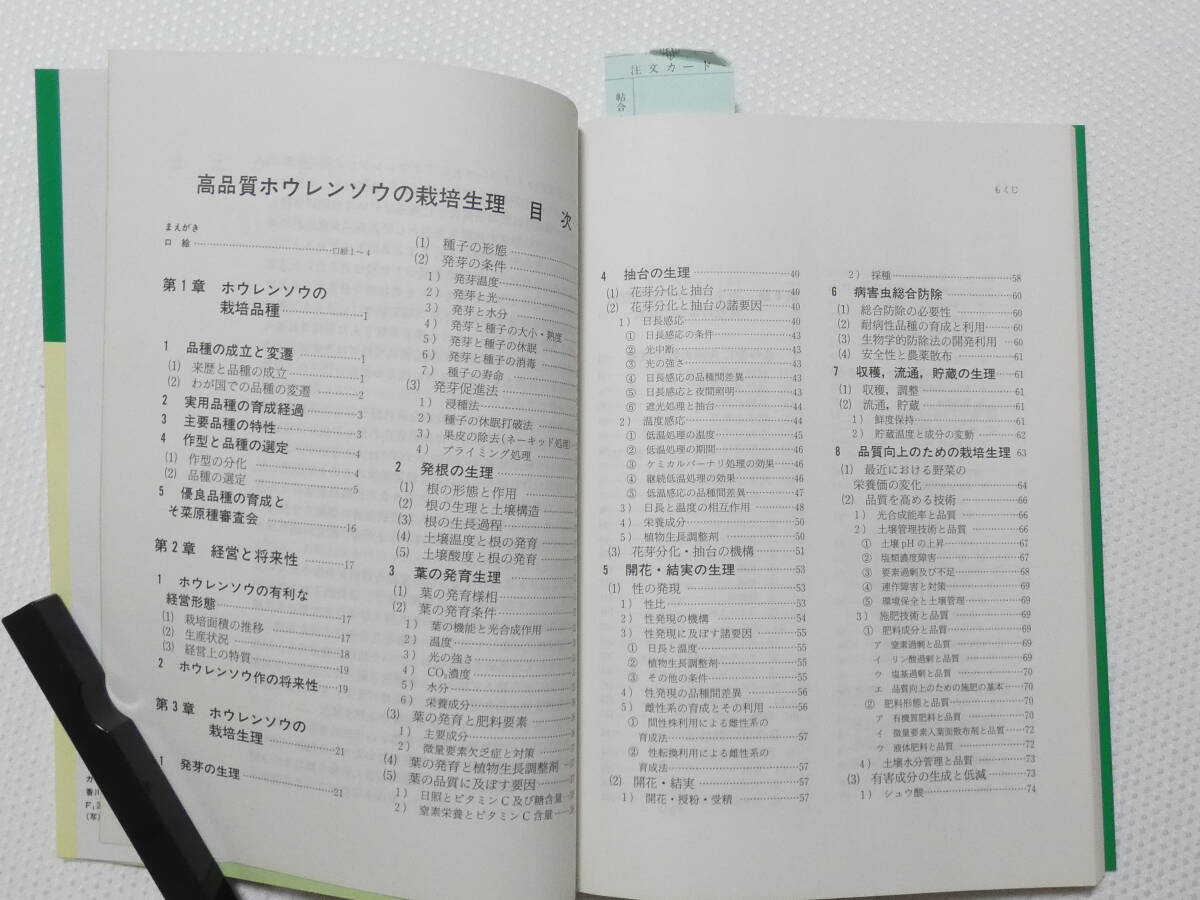 注文カード
帖合
高品質ホウレンソウの栽培生理 目 次
まえがき
口 絵……口絵1〜4
第1章 ホウレンソウの
栽培品種……1
1 品種の成立と変遷……1
(1) 来歴と品種の成立……1
(2) わが国での品種の変遷……2
2 実用品種の育成経過……3
3 主要品種の特性……3
4 作型と品種の選定……4
(1) 作型の分化……4
(2) 品種の選定……5
5 優良品種の育成と
そ菜原種審査会……16
第2章 経営と将来性……17
1 ホウレンソウの有利な
経営形態……17
(1) 栽培面積の推移……17
(2) 生産状況……18
(3) 経営上の特質……19
2 ホウレンソウ作の将来性……19
第3章 ホウレンソウの
栽培生理……21
1 発芽の生理……21
(1) 種子の形態……
(2) 発芽の条件……
1) 発芽温度……
2) 発芽と光……
3) 発芽と水分……
4) 発芽と種子の大小・熟度……
5) 発芽と種子の休眠……
6) 発芽と種子の消毒……
7) 種子の寿命……
(3) 発芽促進法……
1) 浸種法……
2) 種子の休眠打破法……
3) 果皮の除去(ネーキッド処理)……
4) プライミング処理……
2 発根の生理……
(1) 根の形態と作用……
(2) 根の生理と土壌構造……
(3) 根の生長過程……
(4) 土壌温度と根の発育……
(5) 土壌酸度と根の発育……
3 葉の発育生理……
(1) 葉の発育様相……
(2) 葉の発育条件……
1) 葉の機能と光合成作用……
2) 温度……
3) 光の強さ……
4) CO₂濃度……
5) 水分……
6) 栄養成分……
(3) 葉の発育と肥料要素……
1) 主要成分……
2) 微量要素欠乏症と対策……
(4) 葉の発育と植物生長調整剤……
(5) 葉の品質に及ぼす要因……
1) 日照とビタミンC及び糖含量……
2) 窒素栄養とビタミンC含量……
もくじ
4 抽台の生理……40
(1) 花芽分化と抽台……40
(2) 花芽分化と抽台の諸要因……40
1) 日長感応……40
① 日長感応の条件……43
② 光中断……43
③ 光の強さ……43
④ 日長感応の品種間差異……43
⑤ 日長感応と夜間照明……43
⑥ 遮光処理と抽台……44
2) 温度感応……44
① 低温処理の温度……45
② 低温処理の期間……46
③ ケミカルバーナリ処理の効果……46
④ 継続低温処理の効果……46
⑤ 低温感応の品種間差異……47
3) 日長と温度の相互作用……48
4) 栄養成分……50
5) 植物生長調整剤……50
(3) 花芽分化・抽台の機構……51
5 開花・結実の生理……53
(1) 性の発現……53
1) 性比……53
2) 性発現の機構……54
3) 性発現に及ぼす諸要因……55
① 日長と温度……55
② 植物生長調整剤……55
③ その他の条件……55
4) 性発現の品種間差異……56
5) 雌性系の育成とその利用……56
① 間性株利用による雌性系の
育成法……57
② 性転換利用による雌性系の
育成法……57
(2) 開花・結実……57
1) 開花・授粉・受精……57
2) 採種……58
6 病害虫総合防除……60
(1) 総合防除の必要性……60
(2) 耐病性品種の育成と利用……60
(3) 生物学的防除法の開発利用……60
(4) 安全性と農薬散布……61
7 収穫，流通，貯蔵の生理……61
(1) 収穫，調整……61
(2) 流通，貯蔵……61
1) 鮮度保持……61
2) 貯蔵温度と成分の変動……62
8 品質向上のための栽培生理 63
(1) 最近における野菜の
栄養価の変化……64
(2) 品質を高める技術……66
1) 光合成能率と品質……66
2) 土壌管理技術と品質……66
① 土壌pHの上昇……67
② 塩類濃度障害……67
③ 要素過剰及び不足……68
④ 連作障害と対策……68
⑤ 環境保全と土壌管理……69
3) 施肥技術と品質……69
① 肥料成分と品質……69
ア 窒素過剰と品質……69
イ リン酸過剰と品質……69
ウ 塩基過剰と品質……70
エ 品質向上のための施肥の基本……70
② 肥料形態と品質……70
ア 有機質肥料と品質……71
イ 微量要素入葉面散布剤と品質……72
ウ 液体肥料と品質……72
4) 土壌水分管理と品質……73
(3) 有害成分の生成と低減……73
1) シュウ酸……74